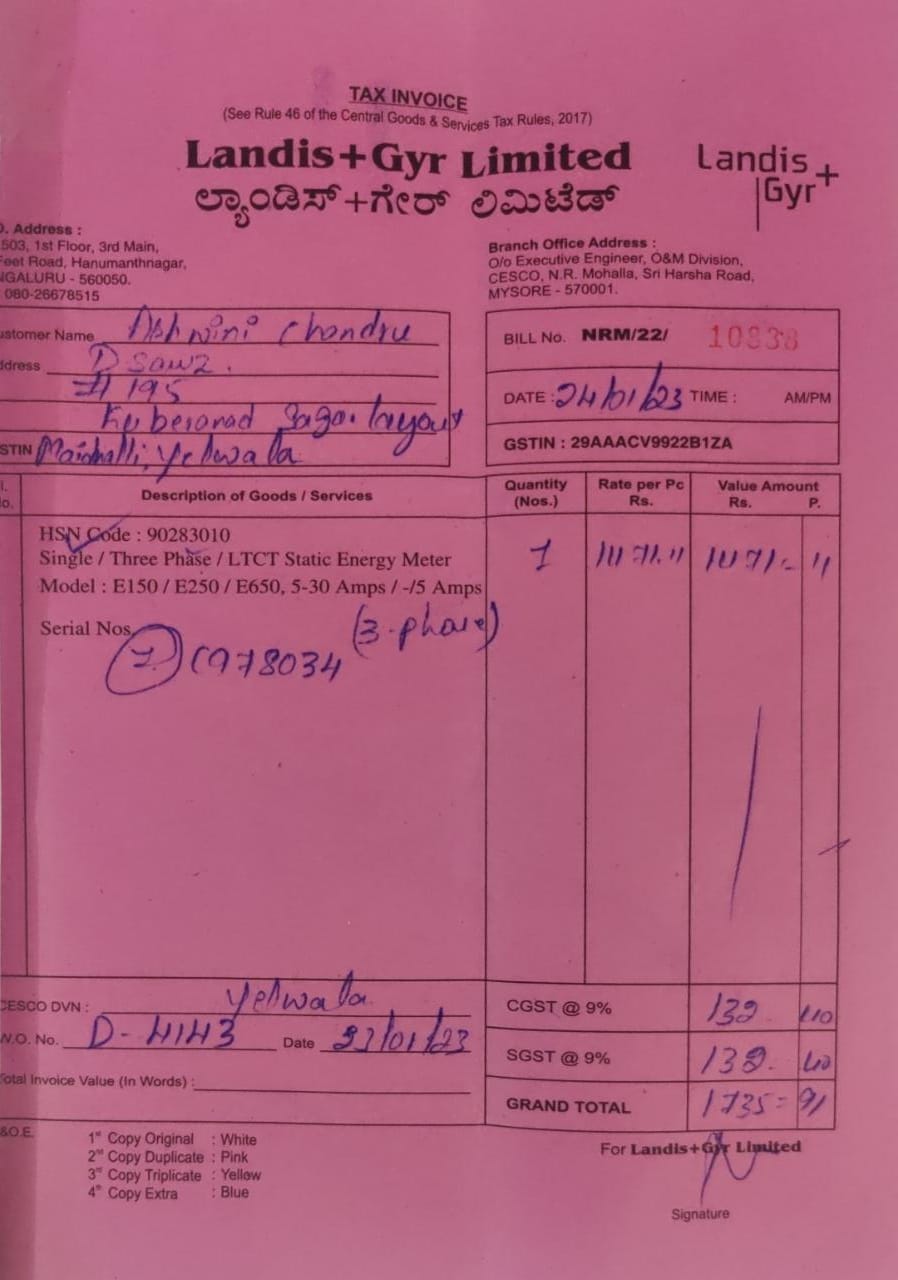 TAX INVOICE
(See Rule 46 of the Central Goods & Services Tax Rules, 2017)
Landis+Gyr Limited
ಲ್ಯಾಂಡಿಸ್+ಗೇರ್ ಲಿಮಿಟೆಡ್
Landis+
Gyr+
. Address :
503, 1st Floor, 3rd Main,
eet Road, Hanumanthnagar,
NGALURU - 560050.
080-26678515
Branch Office Address :
O/o Executive Engineer, O&M Division,
CESCO, N.R. Mohalla, Sri Harsha Road,
MYSORE - 570001.
ustomer Name Ashwini Chandru
ddress
# 195
layout
STIN Yelwala
BILL No. NRM/22/ 10838
DATE : 24/01/23 TIME : AM/PM
GSTIN : 29AAACV9922B1ZA
Description of Goods / Services
Quantity (Nos.)
Rate per Pc Rs.
Value Amount Rs. P.
HSN Code : 90283010
Single / Three Phase / LTCT Static Energy Meter
Model : E150 / E250 / E650, 5-30 Amps / -/5 Amps
1
1471.11
1471.- 11
Serial Nos. (3-phase)
1 978034
CESCO DVN : Yelwala
W.O. No. D-4143 Date 23/01/23
Total Invoice Value (In Words) :
CGST @ 9% 132 40
SGST @ 9% 132. 40
GRAND TOTAL 1735= 91
&O.E.
1st Copy Original : White
2nd Copy Duplicate : Pink
3rd Copy Triplicate : Yellow
4th Copy Extra : Blue
For Landis+Gyr Limited
Signature